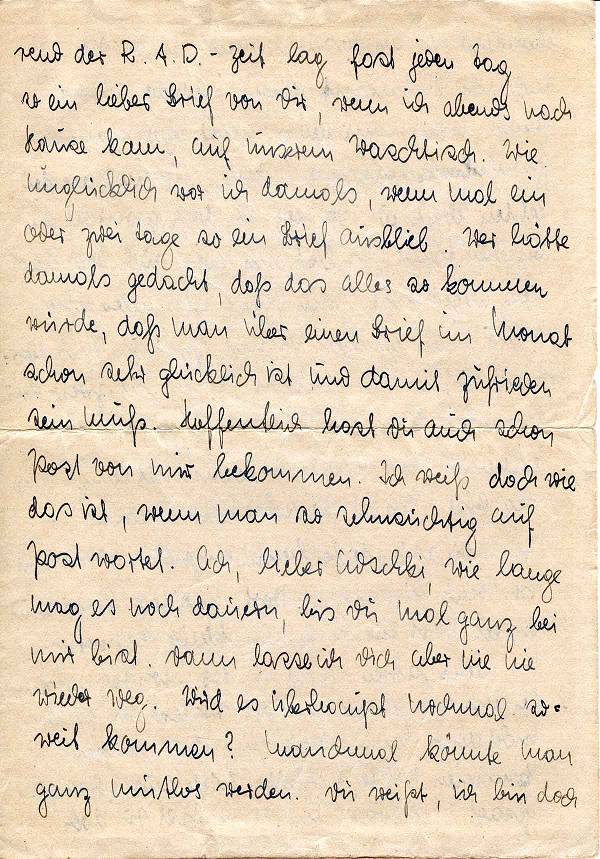 rend der R.A.D.-Zeit lag fast jeden Tag
so ein lieber Brief von Dir, wenn ich abends nach
Hause kam, auf unserem Waschtisch. Wie
unglücklich war ich damals, wenn mal ein
oder zwei Tage so ein Brief ausblieb. Wer hätte
damals gedacht, daß das alles so kommen
würde, daß man über einen Brief im Monat
schon sehr glücklich ist und damit zufrieden
sein muß. Hoffentlich hast Du auch schon
Post von mir bekommen. Ich weiß doch wie
das ist, wenn man so sehnsüchtig auf
Post wartet. Ach, lieber, wie lange
mag es noch dauern, bis Du mal ganz bei
mir bist. Dann lasse ich Dich aber nie nie
wieder weg. Wird es überhaupt nochmal so-
weit kommen? Manchmal könnte man
ganz mutlos werden. Du weißt, ich bin doch